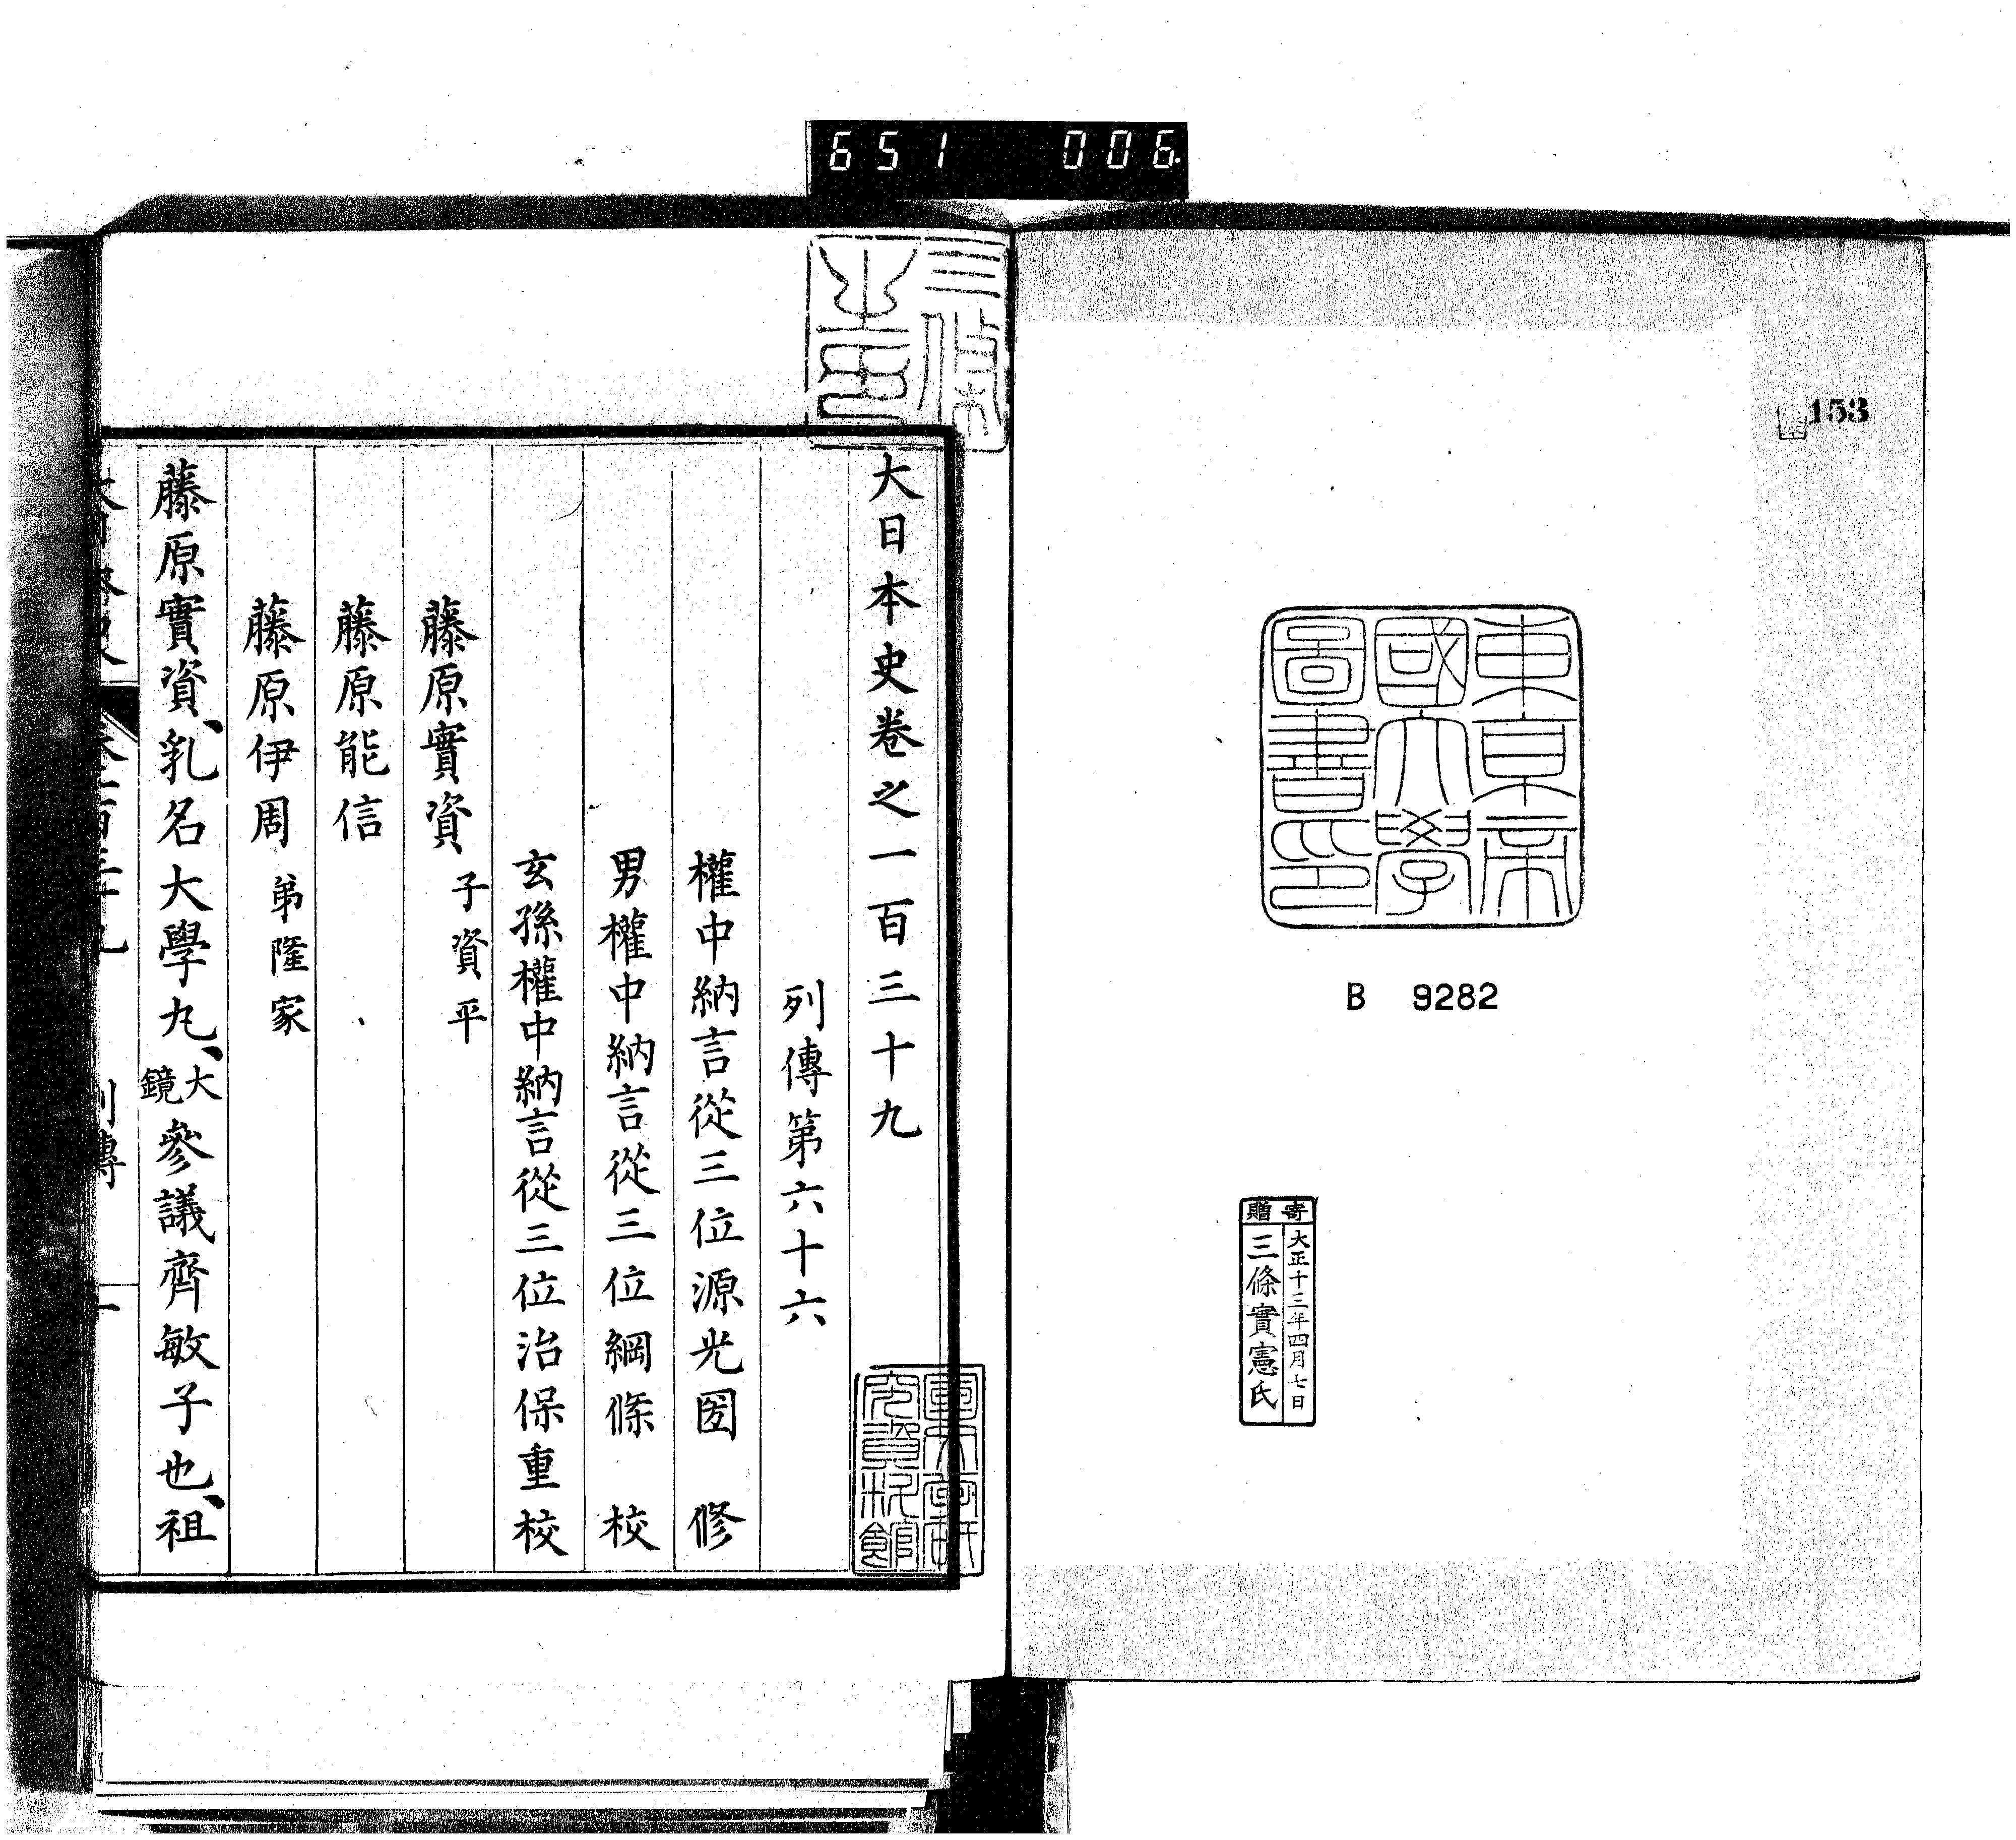 651 006.
153
東京帝
國大學
圖書印
B 9282
寄贈
大正十三年四月七日
三條實憲氏
三條
大日本史卷之一百三十九
列傳第六十六
權中納言從三位源光圀 修
男權中納言從三位綱條 校
玄孫權中納言從三位治保重校
藤原實資 子資平
藤原能信
藤原伊周 弟隆家
藤原實資、乳名大學丸、大鏡參議齊敏子也、祖